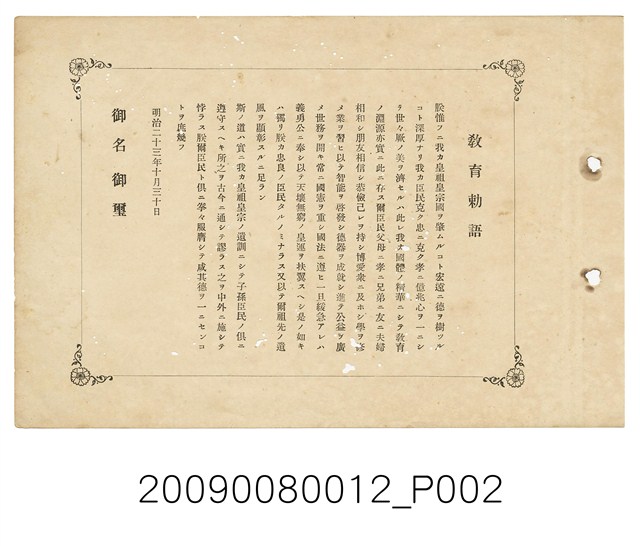 教育勅語
朕惟フニ我カ皇祖皇宗國ヲ肇ムルコト宏遠ニ德ヲ樹ツル
コト深厚ナリ我カ臣民克ク忠ニ克ク孝ニ億兆心ヲ一ニシ
テ世々厥ノ美ヲ濟セルハ此レ我カ國體ノ精華ニシテ教育
ノ淵源亦實ニ此ニ存ス爾臣民父母ニ孝ニ兄弟ニ友ニ夫婦
相和シ朋友相信シ恭儉己レヲ持シ博愛衆ニ及ホシ學ヲ修
メ業ヲ習ヒ以テ智能ヲ啓發シ德器ヲ成就シ進テ公益ヲ廣
メ世務ヲ開キ常ニ國憲ヲ重シ國法ニ遵ヒ一旦緩急アレハ
義勇公ニ奉シ以テ天壤無窮ノ皇運ヲ扶翼スヘシ是ノ如キ
ハ獨リ朕カ忠良ノ臣民タルノミナラス又以テ爾祖先ノ遺
風ヲ顯彰スルニ足ラン
斯ノ道ハ實ニ我カ皇祖皇宗ノ遺訓ニシテ子孫臣民ノ俱ニ
遵守スヘキ所之ヲ古今ニ通シテ謬ラス之ヲ中外ニ施シテ
悖ラス朕爾臣民ト俱ニ拳々服膺シテ咸其德ヲ一ニセンコ
トヲ庶幾フ
明治二十三年十月三十日
御名 御璽
20090080012_P002